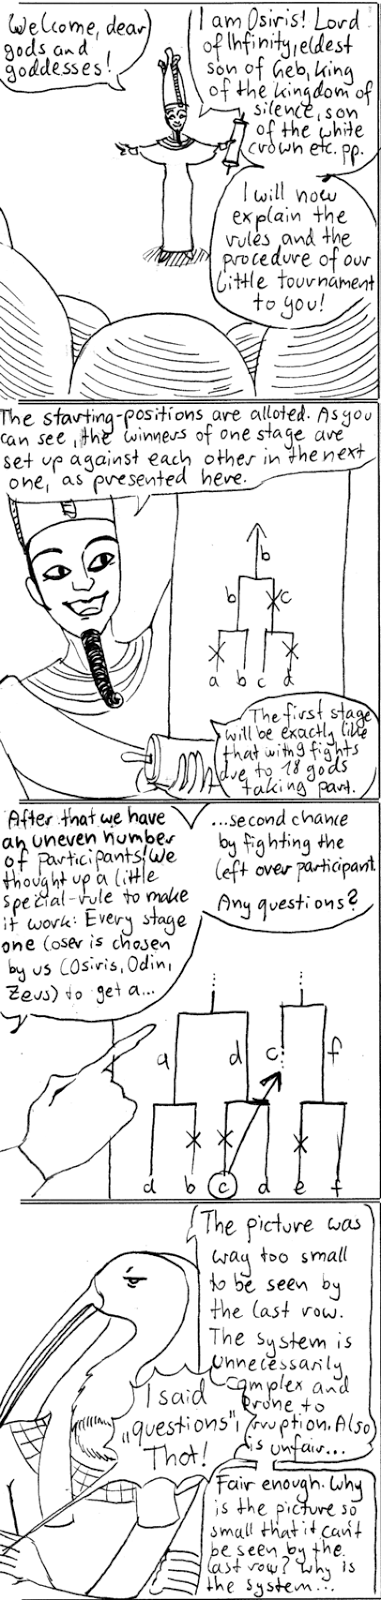 Welcome, dear
gods and
goddesses!
I am Osiris! Lord
of Infinity, eldest
son of Geb, king
of the kingdom of
silence, son
of the white
crown etc. pp.
I will now
explain the
rules and the
procedure of our
little tournament
to you!
The starting-positions are alloted. As you
can see, the winners of one stage are
set up against each other in the next
one, as presented here.
b
b c
a b c d
The first stage
will be exactly like
that with 9 fights
due to 18 gods
taking part.
After that we have
an uneven number
of participants. We
thought up a little
special-rule to make
it work: Every stage
one loser is chosen
by us (Osiris, Odin,
Zeus) to get a...
...second chance
by fighting the
left over participant.
Any questions?
a d c f
a b c d e f
The picture was
way too small
to be seen by
the last row.
The system is
unnecessarily
complex and
prone to
corruption. Also
is unfair...
I said
„questions",
Thot!
Fair enough. Why
is the picture so
small that it can't
be seen by the
last row? Why is
the system...